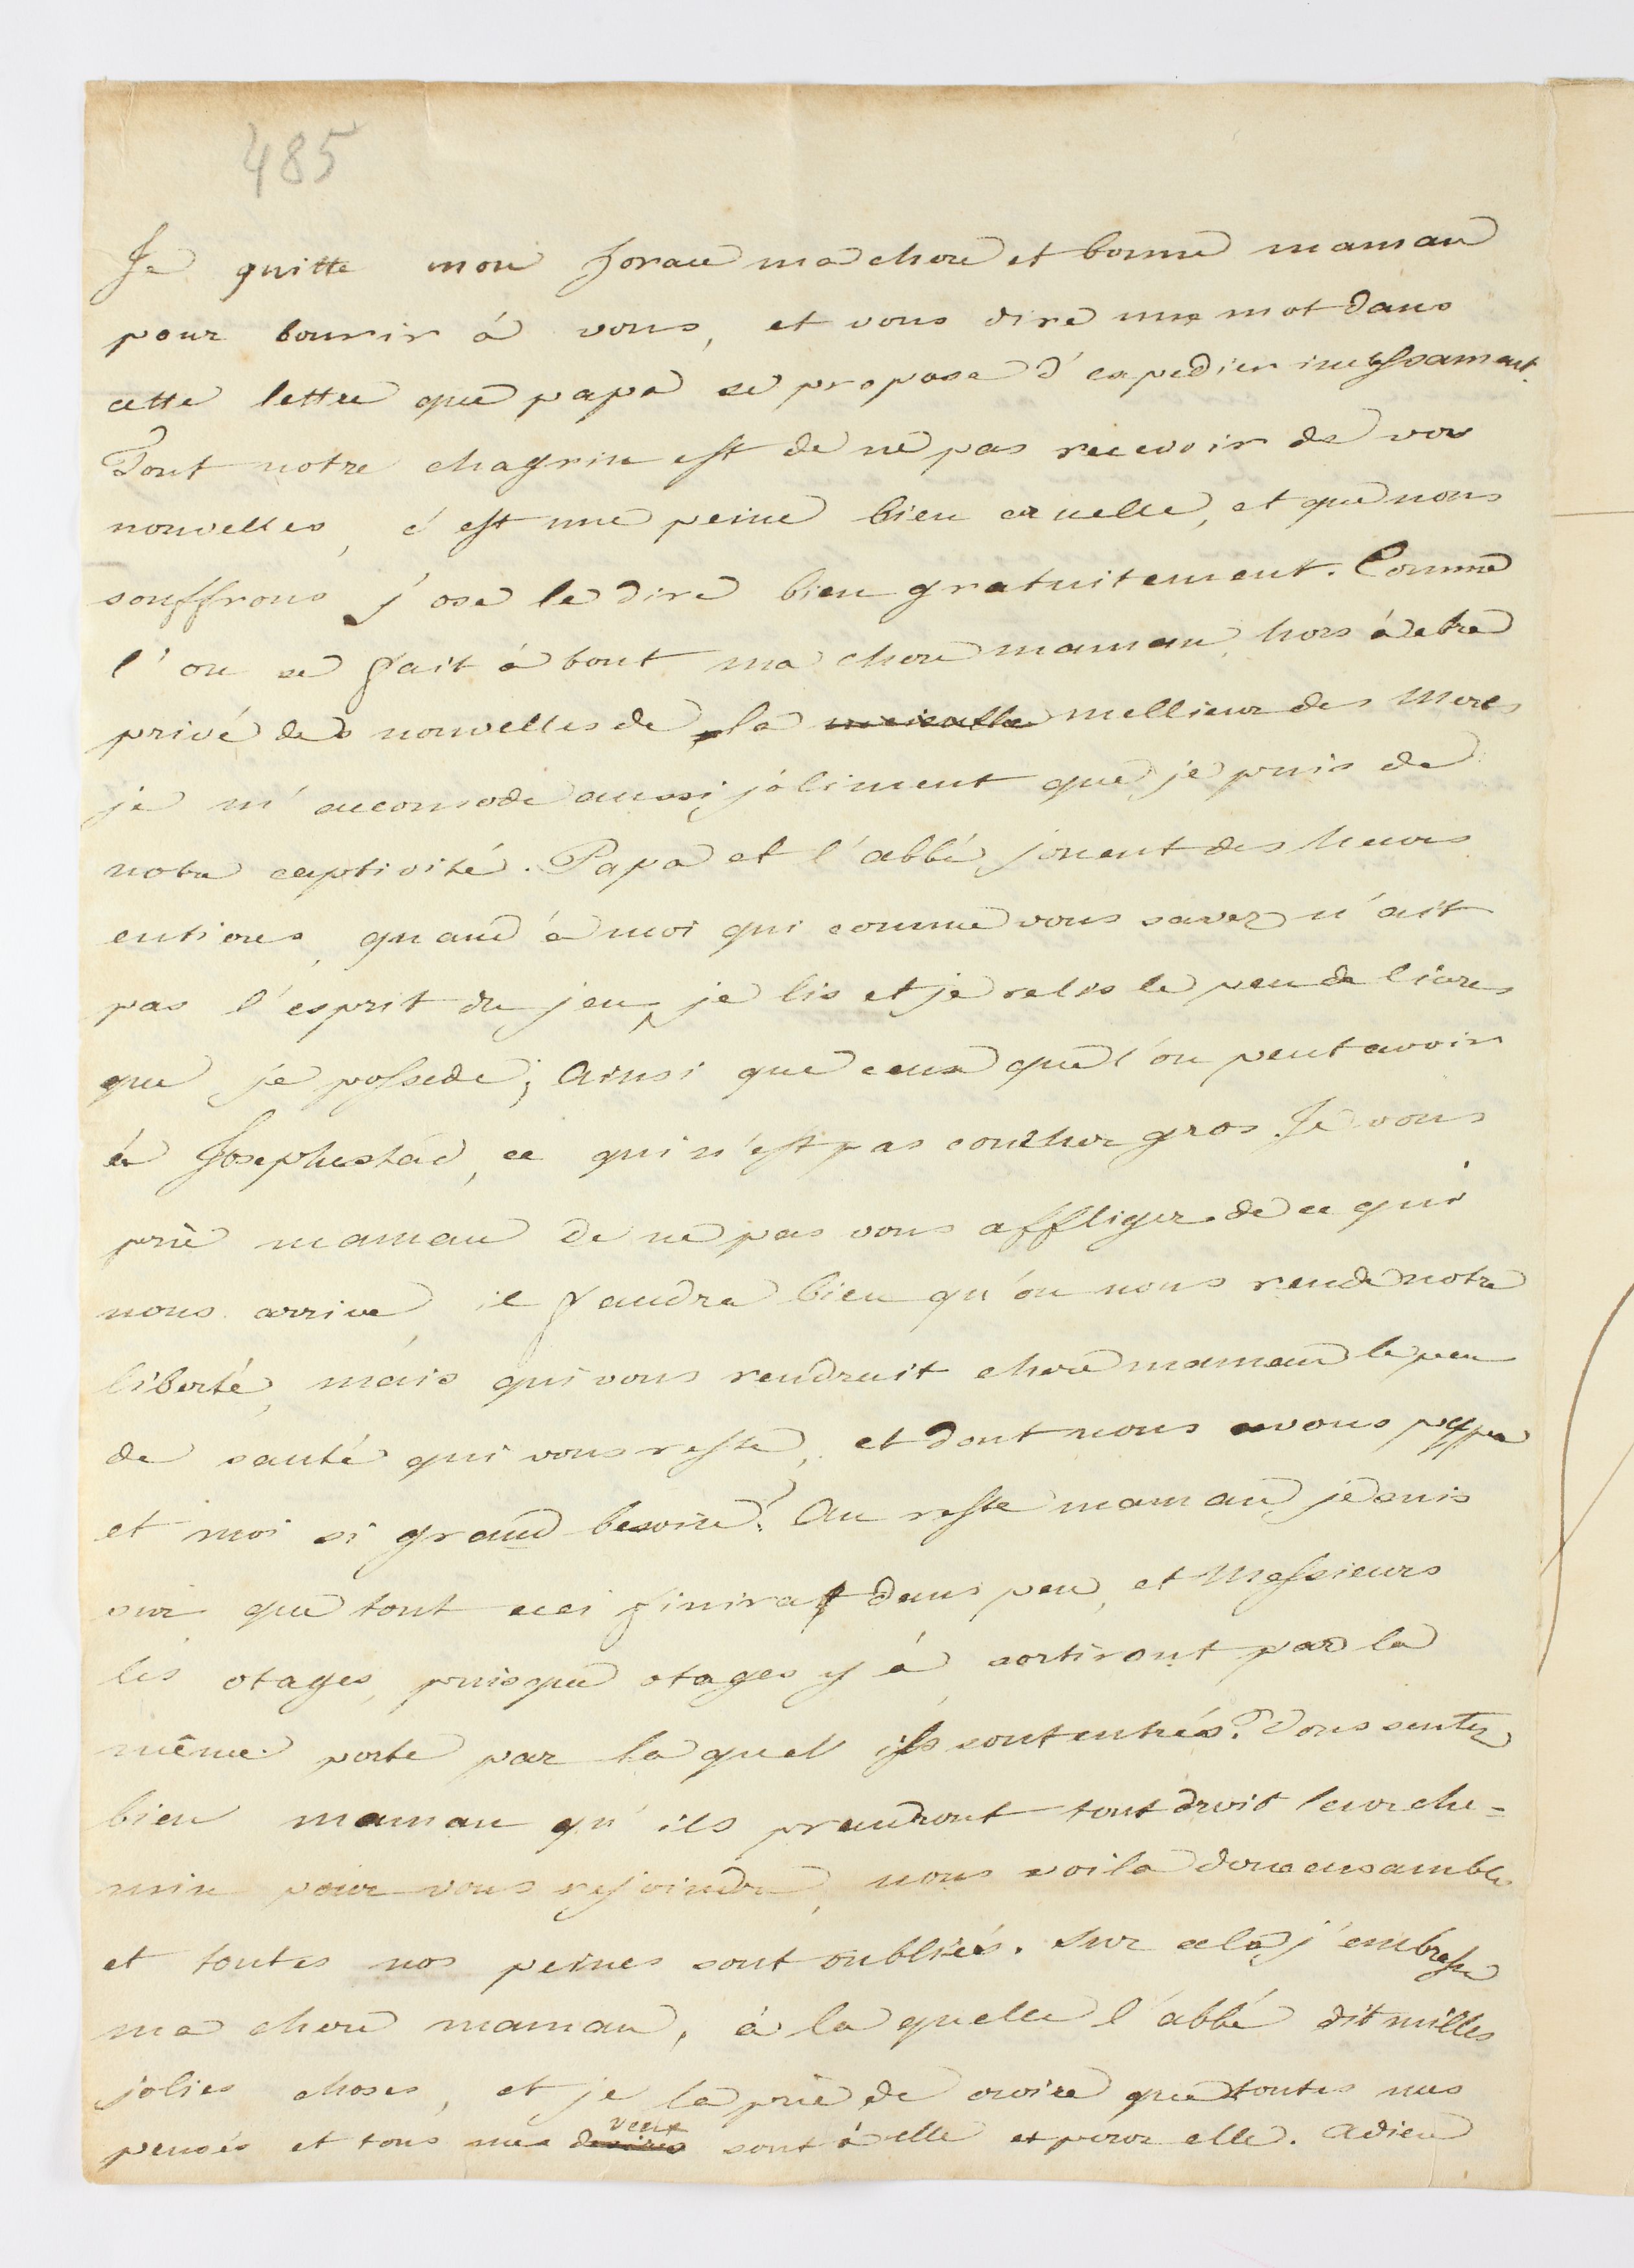 485
Je quitte mon Horace ma chere et bonne maman
pour courir à vous, et vous dire un mot dans
cette lettre que papa se propose d'expedier incessament.
Tout notre chagrin est de ne pas recevoir de vos
nouvelles, c'est une peine bien cruelle, et que nous
souffrons j'ose le dire bien gratuitement. Comme
l'on se fait à tout ma chere maman, hors à etre
privé des nouvelles de la mellieur des Meres
je m'accomode aussi joliment que je puis de
notre captivité. Papa et l'abbé jouent des heures
entieres, quand à moi qui comme vous savez n'ait
pas l'esprit du jeu, je lis et je relis le peu de livres
que je possede; ainsi que ceux que l'on peut avoir
à Josephstad, ce qui n'est pas coucher gros. Je vous
prie maman de ne pas vous affliger de ce qui
nous arrive, il faudra bien qu'on nous rende notre
liberté, mais qui vous rendrait chere maman le peu
de santé qui vous reste, et dont nous avons papa
et moi si grand besoin? Au reste maman je suis
sur que tout ceci finira dans peu, et Messieurs
les otages, puisque otages y à, sortiront par la
même porte par la quell ils sont entrés. Vous sentez
bien maman qu'ils prendront tout droit leur che=
min pour vous rejoindre, nous voila donc ensembles
et toutes nos peines sont oubliés. Sur cela j'embrasse
ma chere maman, à la quelle l'abbé dit milles
jolies choses, et je la prie de croire que toutes mes
veux
pensés et tous mes desires sont à elle et pour elle. Adieu